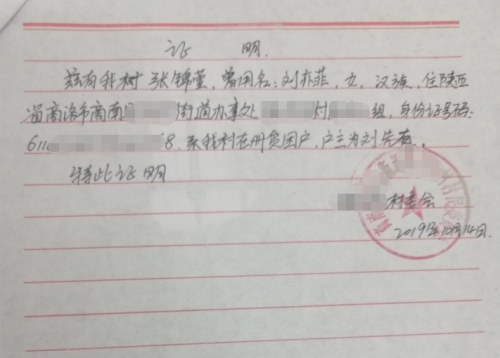 证 明
兹有我村张锦萱，曾用名：刘亦菲，女，汉族，住陕西
省商洛市商南 街道办事处 村 组，身份证号码：
611 8，系我村在册贫困户，户主为刘先
特此证明
村委会
2019年10月14日